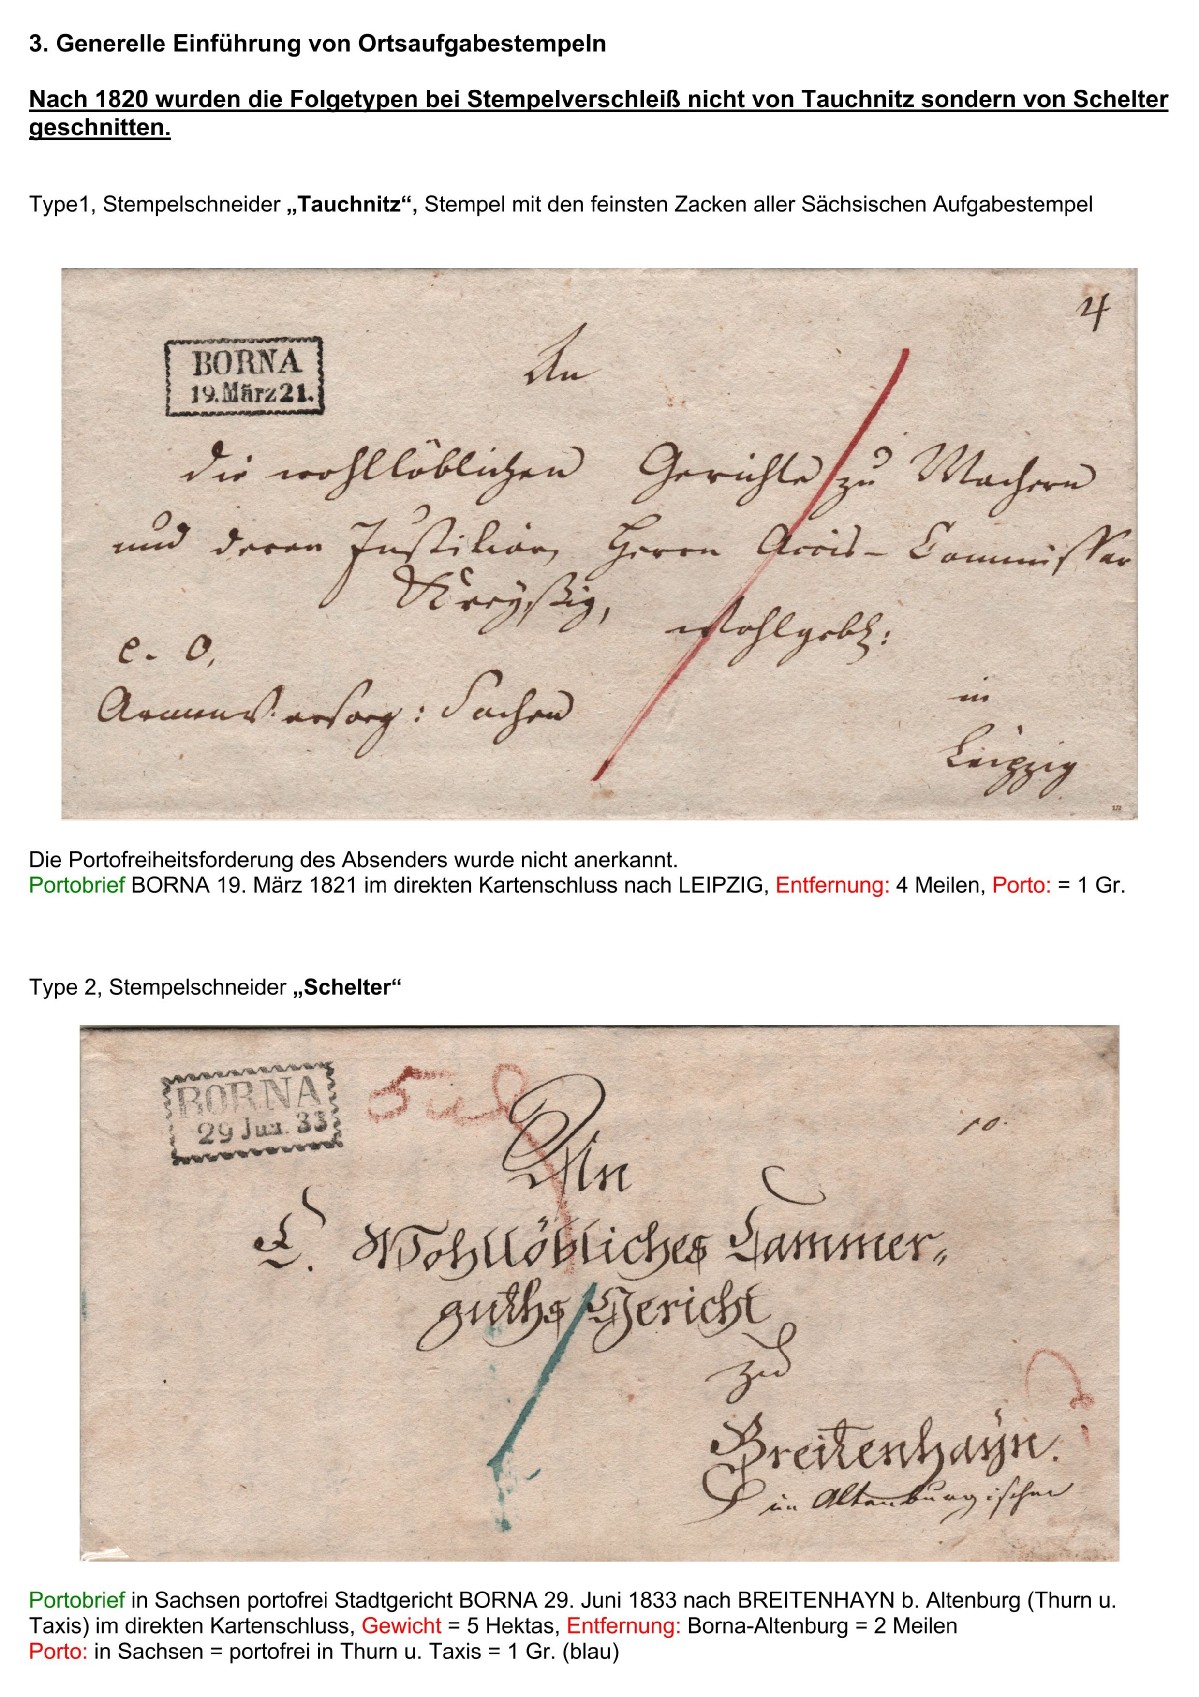 3. Generelle Einführung von Ortsaufgabestempeln
Nach 1820 wurden die Folgetypen bei Stempelverschleiß nicht von Tauchnitz sondern von Schelter
geschnitten.
Type1, Stempelschneider „Tauchnitz“, Stempel mit den feinsten Zacken aller Sächsischen Aufgabestempel
4
BORNA
19. März 21.
An
die wohllöblichen Gerichte zu Machern
und deren Justitiar, Herrn Accis-Commissar
Kreyßig,
Wohlgeb:
e. O.
Armenversorg: Sachen
in
Leipzig
Die Portofreiheitsforderung des Absenders wurde nicht anerkannt.
Portobrief BORNA 19. März 1821 im direkten Kartenschluss nach LEIPZIG, Entfernung: 4 Meilen, Porto: = 1 Gr.
Type 2, Stempelschneider „Schelter“
BORNA
29 Jun. 33
10.
An
E. Wohllöbliches Cammer-
guths Gericht
zu
Breitenhayn.
im Altenburgischen
Portobrief in Sachsen portofrei Stadtgericht BORNA 29. Juni 1833 nach BREITENHAYN b. Altenburg (Thurn u.
Taxis) im direkten Kartenschluss, Gewicht = 5 Hektas, Entfernung: Borna-Altenburg = 2 Meilen
Porto: in Sachsen = portofrei in Thurn u. Taxis = 1 Gr. (blau)